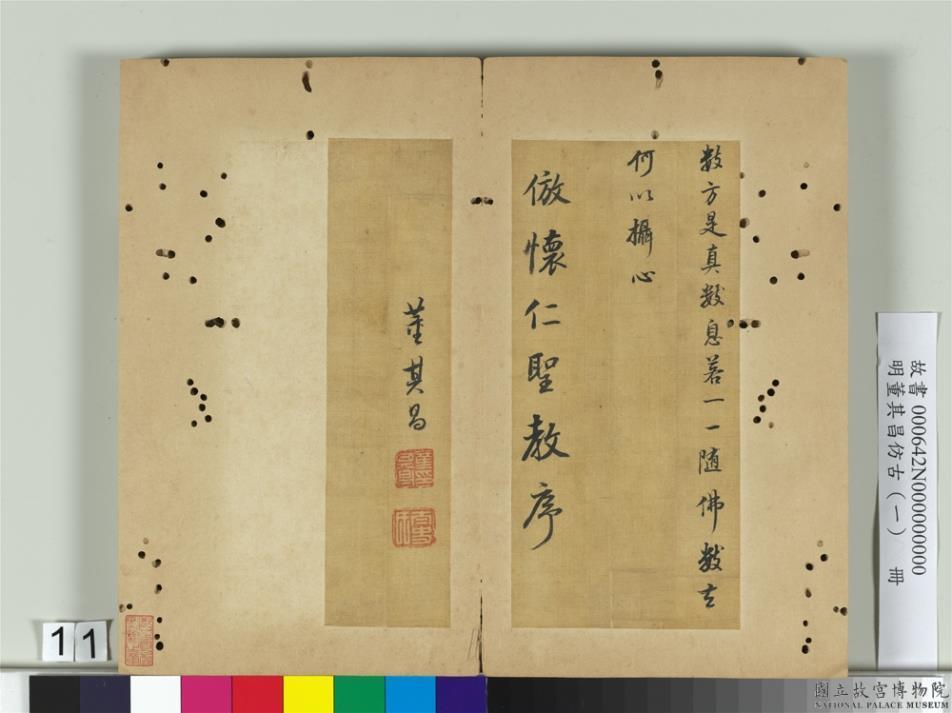 數方是真數息若一一随佛數去
何以攝心
倣懷仁聖教序
董其昌
11
故書 000642N000000000
明董其昌仿古(一) 冊
國立故宮博物院
NATIONAL PALACE MUSEUM